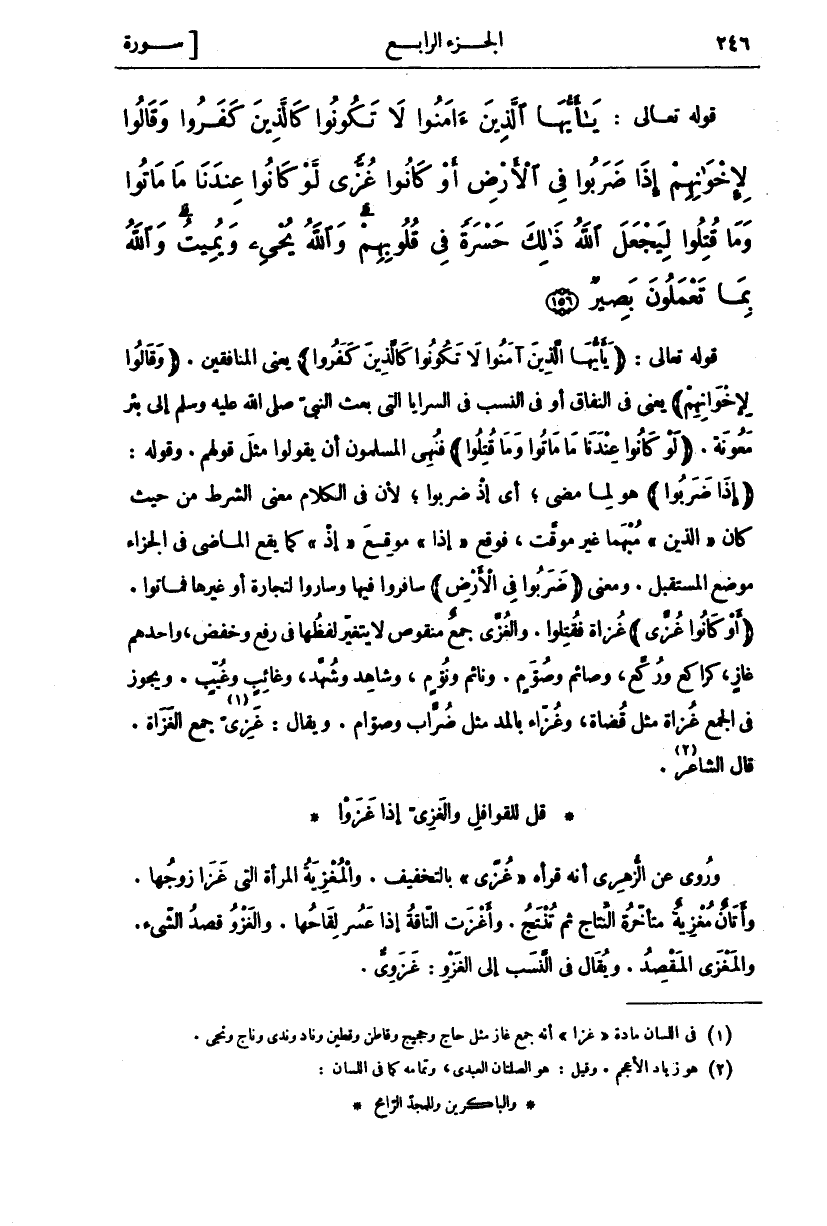 ٢٤٦ الجزء الرابع [ سورة
قوله تعالى : يَـٰٓأَيُّهَا ٱلَّذِينَ ءَامَنُوا لَا تَكُونُوا كَٱلَّذِينَ كَفَرُوا وَقَالُوا
لِإِخْوَٰنِهِمْ إِذَا ضَرَبُوا فِى ٱلْأَرْضِ أَوْ كَانُوا غُزًّى لَّوْ كَانُوا عِندَنَا مَا مَاتُوا
وَمَا قُتِلُوا لِيَجْعَلَ ٱللَّهُ ذَٰلِكَ حَسْرَةً فِى قُلُوبِهِمْ ۗ وَٱللَّهُ يُحْىِۦ وَيُمِيتُ ۗ وَٱللَّهُ
بِمَا تَعْمَلُونَ بَصِيرٌ ١٥٦
قوله تعالى : ﴿يَأَيُّهَا الَّذِينَ آمَنُوا لَا تَكُونُوا كَالَّذِينَ كَفَرُوا﴾ يعنى المنافقين . ﴿وَقَالُوا
لِإِخْوَانِهِمْ﴾ يعنى فى النفاق أو فى النسب فى السرايا التى بعث النبىّ صلى الله عليه وسلم إلى بئر
مَعُونَة . ﴿لَوْ كَانُوا عِنْدَنَا مَا مَاتُوا وَمَا قُتِلُوا﴾ فنُهِى المسلمون أن يقولوا مثلَ قولهم . وقوله :
﴿إِذَا ضَرَبُوا﴾ هو لِما مضى ؛ أى إذْ ضربوا ؛ لأن فى الكلام معنى الشرط من حيث
كان « الذين » مُبْهَما غير موقّت ، فوقع « إذا » موقِعَ « إذْ » كما يقع الماضى فى الجزاء
موضع المستقبل . ومعنى ﴿ضَرَبُوا فِى الْأَرْضِ﴾ سافروا فيها وساروا لتجارة أو غيرها فماتوا .
﴿أَوْ كَانُوا غُزًّى﴾ غُزاة فقُتِلوا . والغُزَّى جمعٌ منقوص لا يتغيّر لفظُها فى رفع وخفض، واحدهم
غازٍ، كراكع ورُكَّع، وصائم وصُوَّم . ونائم ونُوَّم ، وشاهد وشُهَّد، وغائبٍ وغُيَّبٍ . ويجوز
فى الجمع غُزاة مثل قُضاة، وغُزّاء بالمد مثل ضُرَّاب وصوّام . ويقال : غَزِىّ(١) جمع الغَزَاة .
قال الشاعر(٢) .
* قل للقوافل والغَزِىّ إذا غَزَوْا *
ورُوى عن الزُّهرِى أنه قرأه « غُزًى » بالتخفيف . والْمُغْزِيَةُ المرأة التى غَزَا زوجُها .
وأَتَانٌ مُغْزِيةٌ متأخّرةُ النّتاج ثم تُنْتَجُ . وأَغْزَت النّاقةُ إذا عَسُر لِقَاحُها . والغَزْوُ قصدُ الشّىء.
والمَغْزَى المَقْصِدُ . ويُقَال فى النَّسَب إلى الغَزْوِ : غَزَوِىٌّ .
(١) فى اللسان مادة « غزا » أنه جمع غاز مثل حاج وحجيج وقاطن وقطين وناد وندى وناج ونجى .
(٢) هو زياد الأعجم . وقيل : هو الصلتان العبدى، وتمامه كما فى اللسان :
* والباكرين وللمجدّ الرّاﺋﺢ *